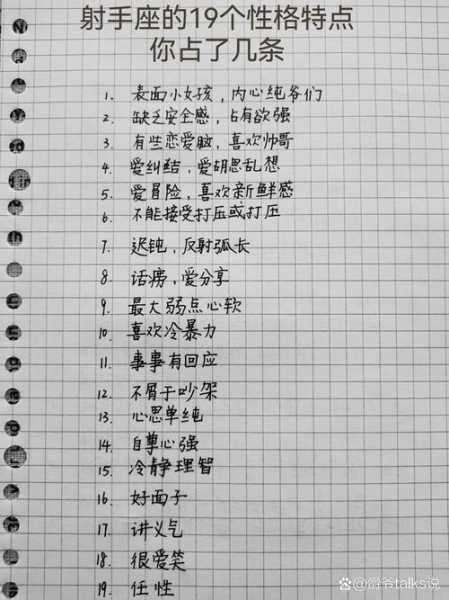 射手座的19个性格特点
你占了几条
1. 表面小女孩，内心纯爷们
2. 缺乏安全感，占有欲强
3. 有些恋爱脑，喜欢帅哥
4. 爱纠结，爱胡思乱想
5. 爱冒险，喜欢新鲜感
6. 不能接受打压或打压
7. 迟钝，反射弧长
8. 话痨，爱分享
9. 最大弱点心软
10. 喜欢冷暴力
11. 事事有回应
12. 不屑于吵架
13. 心思单纯
14. 自尊心强
15. 冷静理智
16. 好面子
17. 讲义气
18. 很爱笑
19. 任性
talks说